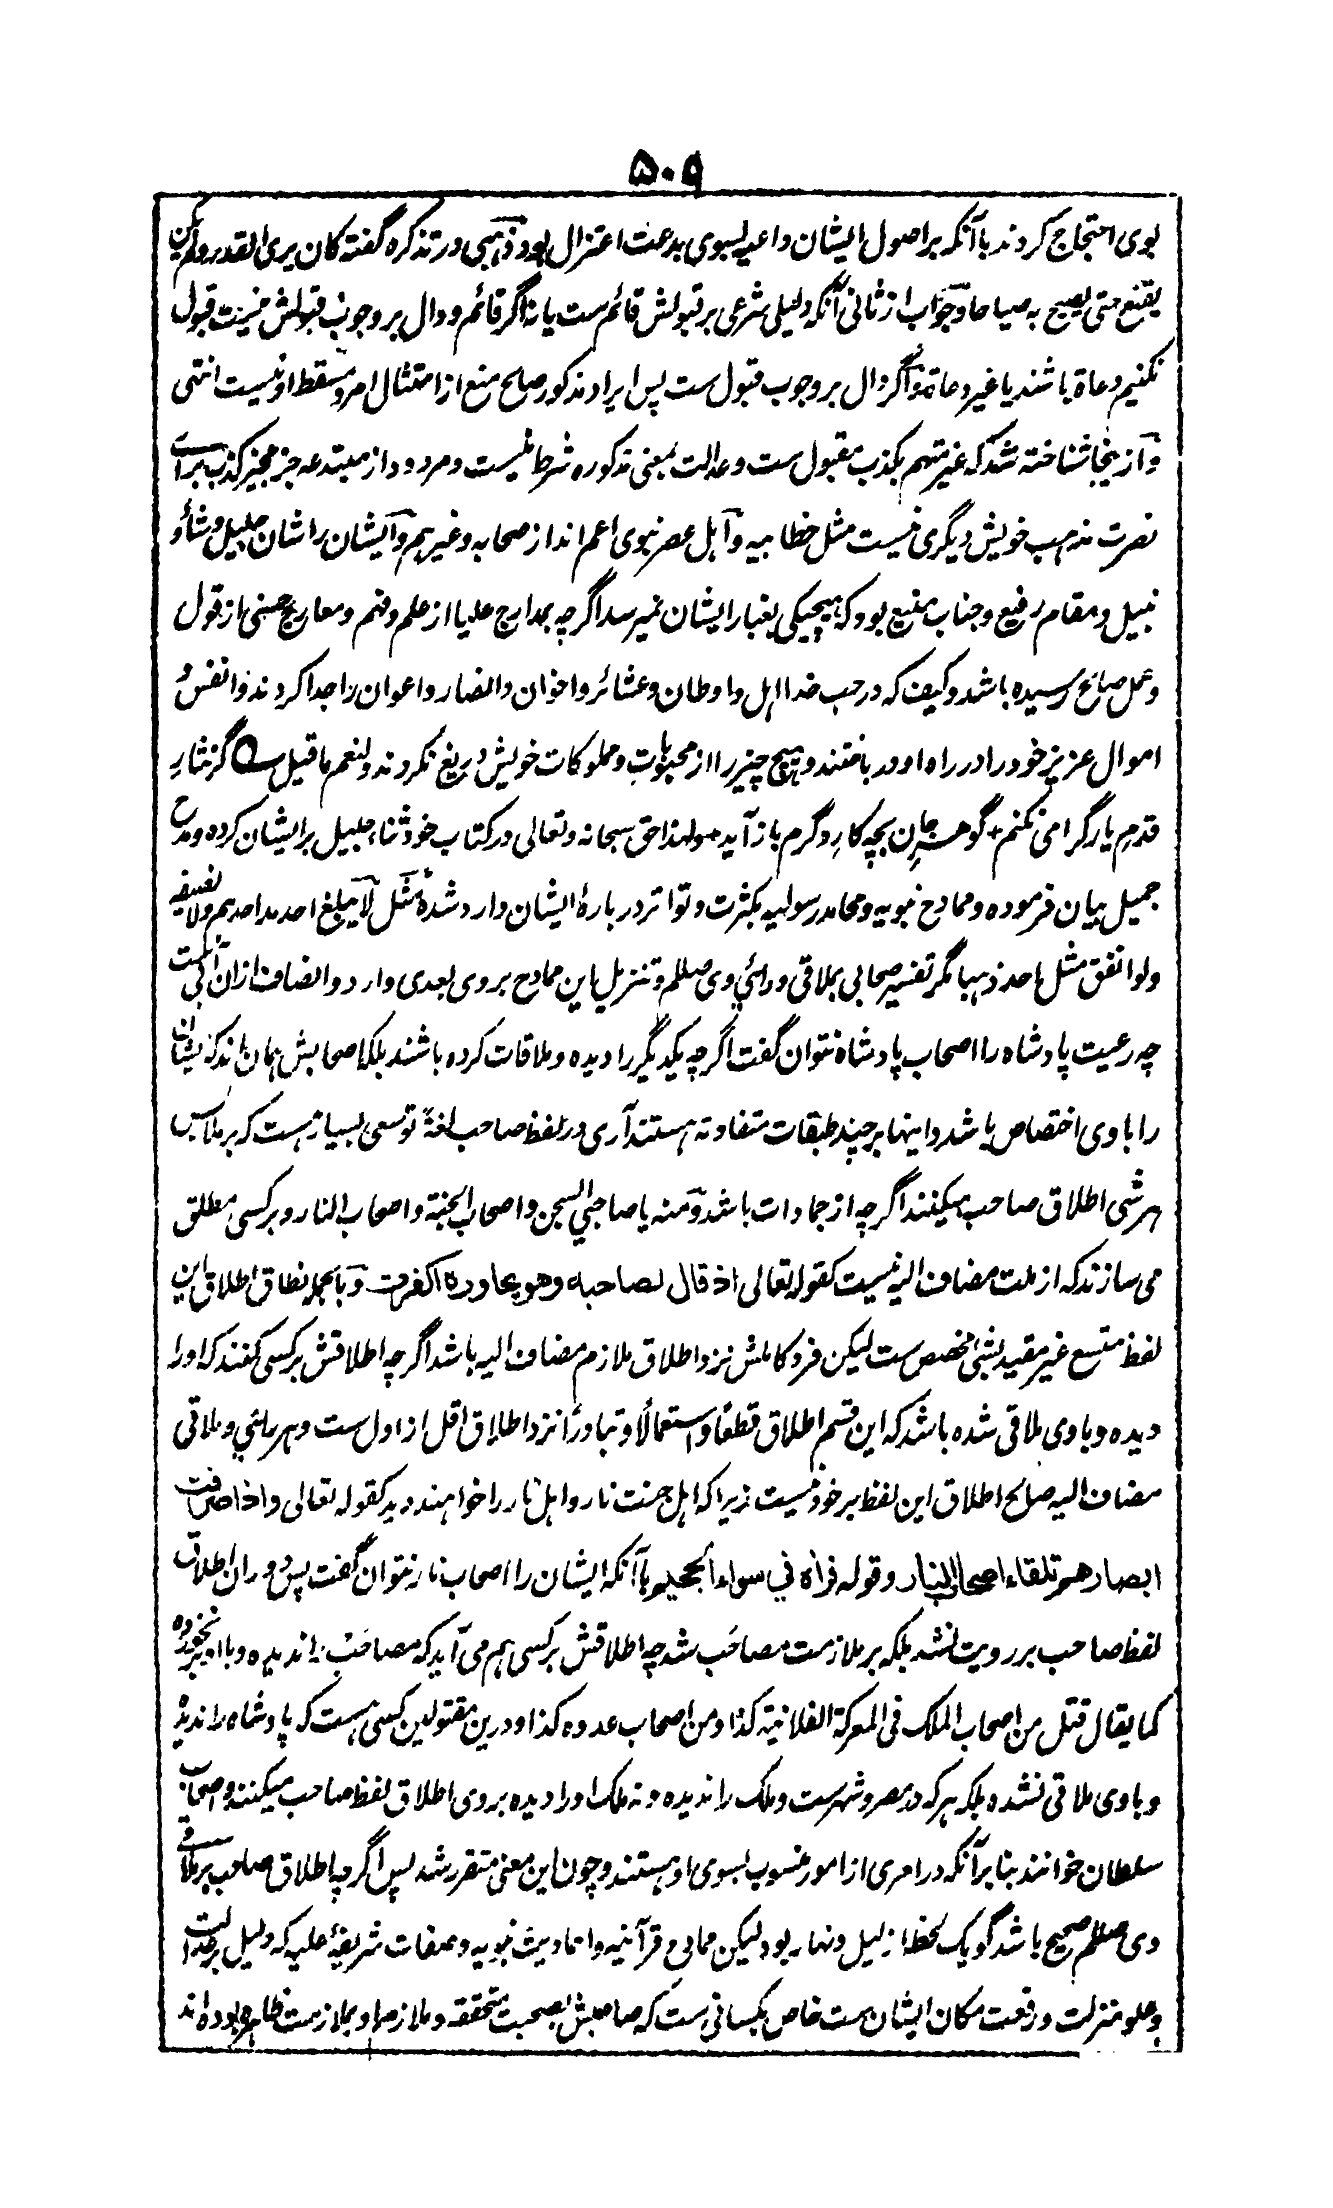 ۵۰۹
بوی احتجاج کردند با آنکه بر اصول ایشان داعیه بسوی بدعت اعتزال بود ذهبی در تذکره گفته کان یری القدر ولم یکن
یقنع حتی یصیح به صیاحا وجواب از ثانی آنکه دلیلی شرعی بر قبولش قائم ست یا نه اگر قائم ودال بر وجوب قبولش نیست قبول
نکنیم دعاة باشند یا غیر دعاة واگر دال بر وجوب قبول ست پس ایراد مذکور صالح منع از امتثال امر ومسقط او نیست انتهی
واز ینجا شناخته شد که غیر متهم بکذب مقبول ست وعدالت بمعنی مذکوره شرط نیست ومردود از مبتدعه جز مجیز کذب برای
نصرت مذهب خویش دیگری نیست مثل خطابیه واهل عصر نبوی اعم اند از صحابه وغیر هم وایشان را شان جلیل وشأو
نبیل ومقام رفیع وجناب منیع بود که هیچیکی بغبار ایشان نمیرسد اگرچه بمدارج علیا از علم وفهم ومعارج حسنی از قول
وعمل صالح رسیده باشد وکیف که در حب خدا اهل واوطان وعشائر واخوان وانصار واعوان را جدا کردند وانفس و
اموال عزیز خود را در راه او در باختند وهیچ چیز را از محبوبات ومملوکات خویش دریغ نکردند ولنعم ما قیل گر نثارِ
قدمِ یار گرامی نکنم + گوهر جان بچه کارِ دگرم باز آید + ولهذا حق سبحانه وتعالی در کتاب خود ثناء جلیل بر ایشان کرده ومدح
جمیل بیان فرموده وممادح نبویه ومحامد رسولیه بکثرت وتواتر در بارهٔ ایشان وارد شده مثل لا یبلغ احد مد احدهم ولا نصیفه
ولو انفق مثل احد ذهبا مگر تفسیر صحابی بملاقی ورائی وی صللم وتنزیل این ممادح بروی بعدی دارد وانصاف ازان آبی ست
چه رعیت پادشاه را اصحاب پادشاه نتوان گفت اگرچه یکدیگر را دیده وملاقات کرده باشند بلکه اصحابش همان اند که ایشان
را با وی اختصاص باشد واینها بر چند طبقات متفاوته هستند آری در لفظ صاحب لغةً توسعی بسیار هست که بر ملابس
هر شی اطلاق صاحب میکنند اگرچه از جمادات باشد ومنه یا صاحبی السجن واصحاب الجنة واصحاب النار وبر کسی مطلق
می سازند که از ملت مضاف الیه نیست کقوله تعالی اذ قال لصاحبه وهو یحاوره اکفرت وبالجمله نطاق اطلاق این
لفظ متسع غیر مقید بشی مخصص ست لیکن فرد کاملش نزد اطلاق ملازم مضاف الیه باشد اگرچه اطلاقش بر کسی کنند که او را
دیده وبا وی ملاقی شده باشد که این قسم اطلاق قطعًا واستعمالًا وتبادرًا نزد اطلاق اقل از اول ست وهر رائی وملاقی
مضاف الیه صالح اطلاق این لفظ بر خود نیست زیرا که اهل جنت نار واهل نار را خواهند دید کقوله تعالی واذا صرفت
ابصارهم تلقاء اصحاب النار وقوله فراه فی سواء الجحیم با آنکه ایشان را اصحاب نار نتوان گفت پس دوران اطلاق
لفظ صاحب بر رویت نشد بلکه بر ملازمت مصاحَب شد چه اطلاقش بر کسی هم می آید که مصاحَب را ندیده وبا او نخورده
کما یقال قتل من اصحاب الملک فی المعرکة الفلانیة کذا ومن اصحاب عدوه کذا ودرین مقتولین کسی هست که پادشاه را ندیده
وبا وی ملاقی نشده بلکه هر که در مصر وشهرست وملک را ندیده ونه ملک او را دیده بروی اطلاق لفظ صاحب میکنند واصحاب
سلطان خوانند بنا بر آنکه در امری از امور منسوب بسوی او هستند وچون این معنی متقرر شد پس اگرچه اطلاق صاحب بر ملاقی
وی صللم صحیح باشد گو یک لحظه از لیل ونهار بود لیکن ممادح قرآنیه واحادیث نبویه وصفات شریفهٔ علیه که دلیل بر عدالت
وعلو منزلت ورفعت مکان ایشان ست خاص بکسانی ست که صاحبش بصحبت متحققه وملازمها وبملازمت ظاهره بوده اند